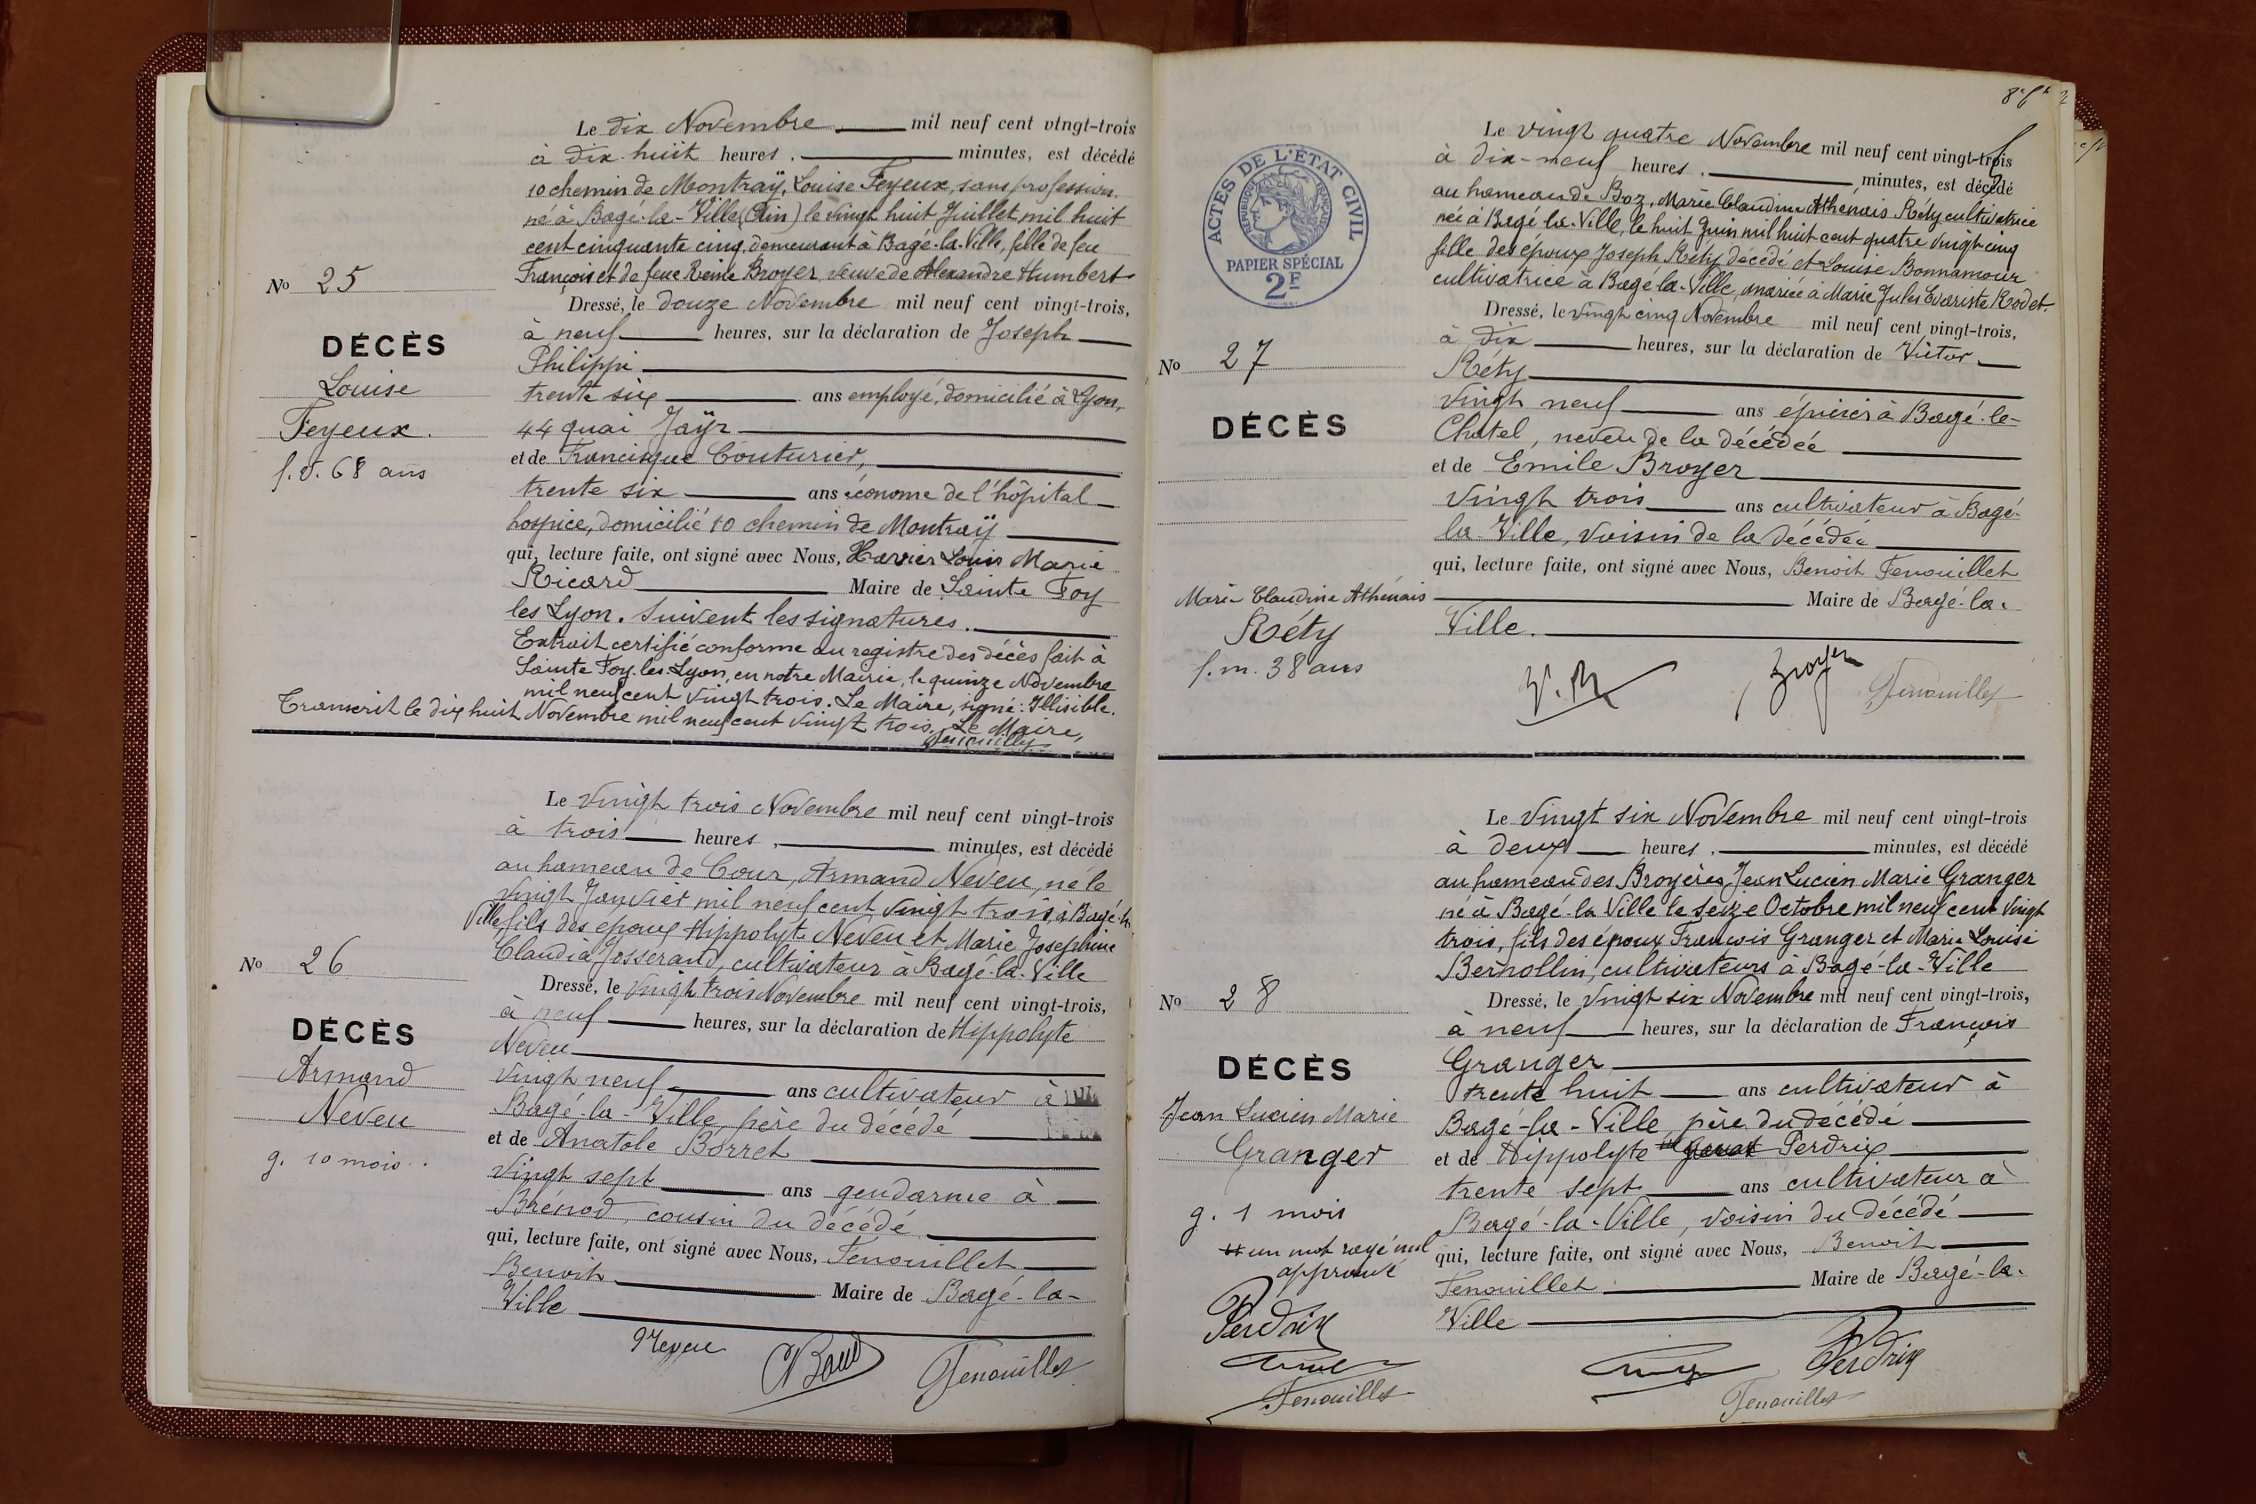 Le dix Novembre mil neuf cent vingt-trois
à dix-huit heures, minutes, est décédé
10 chemin de Montraÿ, Louise Feyeux, sans profession
né à Bagé-la-Ville (Ain) le vingt huit Juillet mil huit
cent cinquante cinq, demeurant à Bagé-la-Ville, fille de feu
François et de feue Reine Broyer veuve de Alexandre Humbert
No 25
Dressé, le douze Novembre mil neuf cent vingt-trois,
à neuf heures, sur la déclaration de Joseph
DÉCÈS
Philippi
Louise
trente six ans employé, domicilié à Lyon,
Feyeux.
44 quai Jaÿr
et de Francisque Couturier,
f. v. 68 ans
trente six ans économe de l'hôpital
hospice, domicilié 10 chemin de Montraÿ
qui, lecture faite, ont signé avec Nous, Xavier Louis Marie
Ricard Maire de Sainte Foy
les Lyon. Suivent les signatures.
Extrait certifié conforme au registre des décès fait à
Sainte Foy-les-Lyon, en notre Mairie, le quinze Novembre
mil neuf cent vingt trois. Le Maire, signé: Illisible.
Transcrit le dix huit Novembre mil neuf cent vingt trois. Le Maire,
Fenouillet
Le vingt trois Novembre mil neuf cent vingt-trois
à trois heures, minutes, est décédé
au hameau de Cour, Armand Neveu, né le
vingt Janvier mil neuf cent vingt trois à Bagé-la-
Ville, fils des époux Hippolyte Neveu et Marie Josephine
Claudia Josserand, cultivateur à Bagé-la-Ville
No 26
Dressé, le vingt trois Novembre mil neuf cent vingt-trois,
à neuf heures, sur la déclaration de Hippolyte
DÉCÈS
Neveu
Armand
vingt neuf ans cultivateur à
Neveu
Bagé-la-Ville, père du décédé
et de Anatole Borret
g. 10 mois.
vingt sept ans gendarme à
Brénod, cousin du décédé
qui, lecture faite, ont signé avec Nous, Fenouillet
Benoit Maire de Bagé-la-
Ville
Neveu
Fenouillet
Le vingt quatre Novembre mil neuf cent vingt-trois
à dix-neuf heures, minutes, est décédé
au hameau de Boz, Marie Claudine Athénaïs Réty cultivatrice
née à Bagé-la-Ville, le huit Juin mil huit cent quatre vingt cinq
fille des époux Joseph Réty décédé et Louise Bonnamour
cultivatrice à Bagé-la-Ville, mariée à Marie Jules Evariste Rodet.
ACTES DE L'ÉTAT CIVIL
RÉPUBLIQUE FRANÇAISE
PAPIER SPÉCIAL
2F
Dressé, le vingt cinq Novembre mil neuf cent vingt-trois,
à dix heures, sur la déclaration de Victor
No 27
Réty
vingt neuf ans épicier à Bagé-le-
DÉCÈS
Chatel, neveu de la décédée
et de Emile Broyer
vingt trois ans cultivateur à Bagé-
la-Ville, voisin de la décédée
qui, lecture faite, ont signé avec Nous, Benoit Fenouillet
Marie Claudine Athénaïs
Maire de Bagé-la-
Réty
Ville.
f. m. 38 ans
V. R
Broyer
Fenouillet
Le vingt six Novembre mil neuf cent vingt-trois
à deux heures, minutes, est décédé
au hameau des Broyères, Jean Lucien Marie Granger
né à Bagé-la-Ville le seize Octobre mil neuf cent vingt
trois, fils des époux François Granger et Marie Louise
Bernollin, cultivateurs à Bagé-la-Ville
No 28
Dressé, le vingt six Novembre mil neuf cent vingt-trois,
à neuf heures, sur la déclaration de François
DÉCÈS
Granger
trente huit ans cultivateur à
Jean Lucien Marie
Bagé-la-Ville, père du décédé
Granger
et de Hippolyte Perdrix
trente sept ans cultivateur à
g. 1 mois
Bagé-la-Ville, voisin du décédé
un mot rayé nul
approuvé
qui, lecture faite, ont signé avec Nous, Benoit
Fenouillet Maire de Bagé-la-
Ville
Perdrix
Fenouillet
Perdrix
Fenouillet